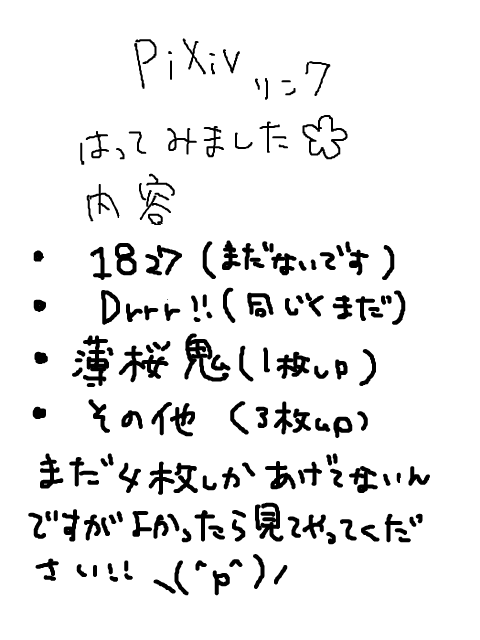 PiXiv リンク
はってみました
内容
・ 1827 (まだないです)
・ Drrr!! (同じくまだ)
・ 薄桜鬼 (1枚up)
・ その他 (3枚up)
まだ4枚しかあげてないん
ですがよかったら見てやってくだ
さい!! ＼(^p^)/